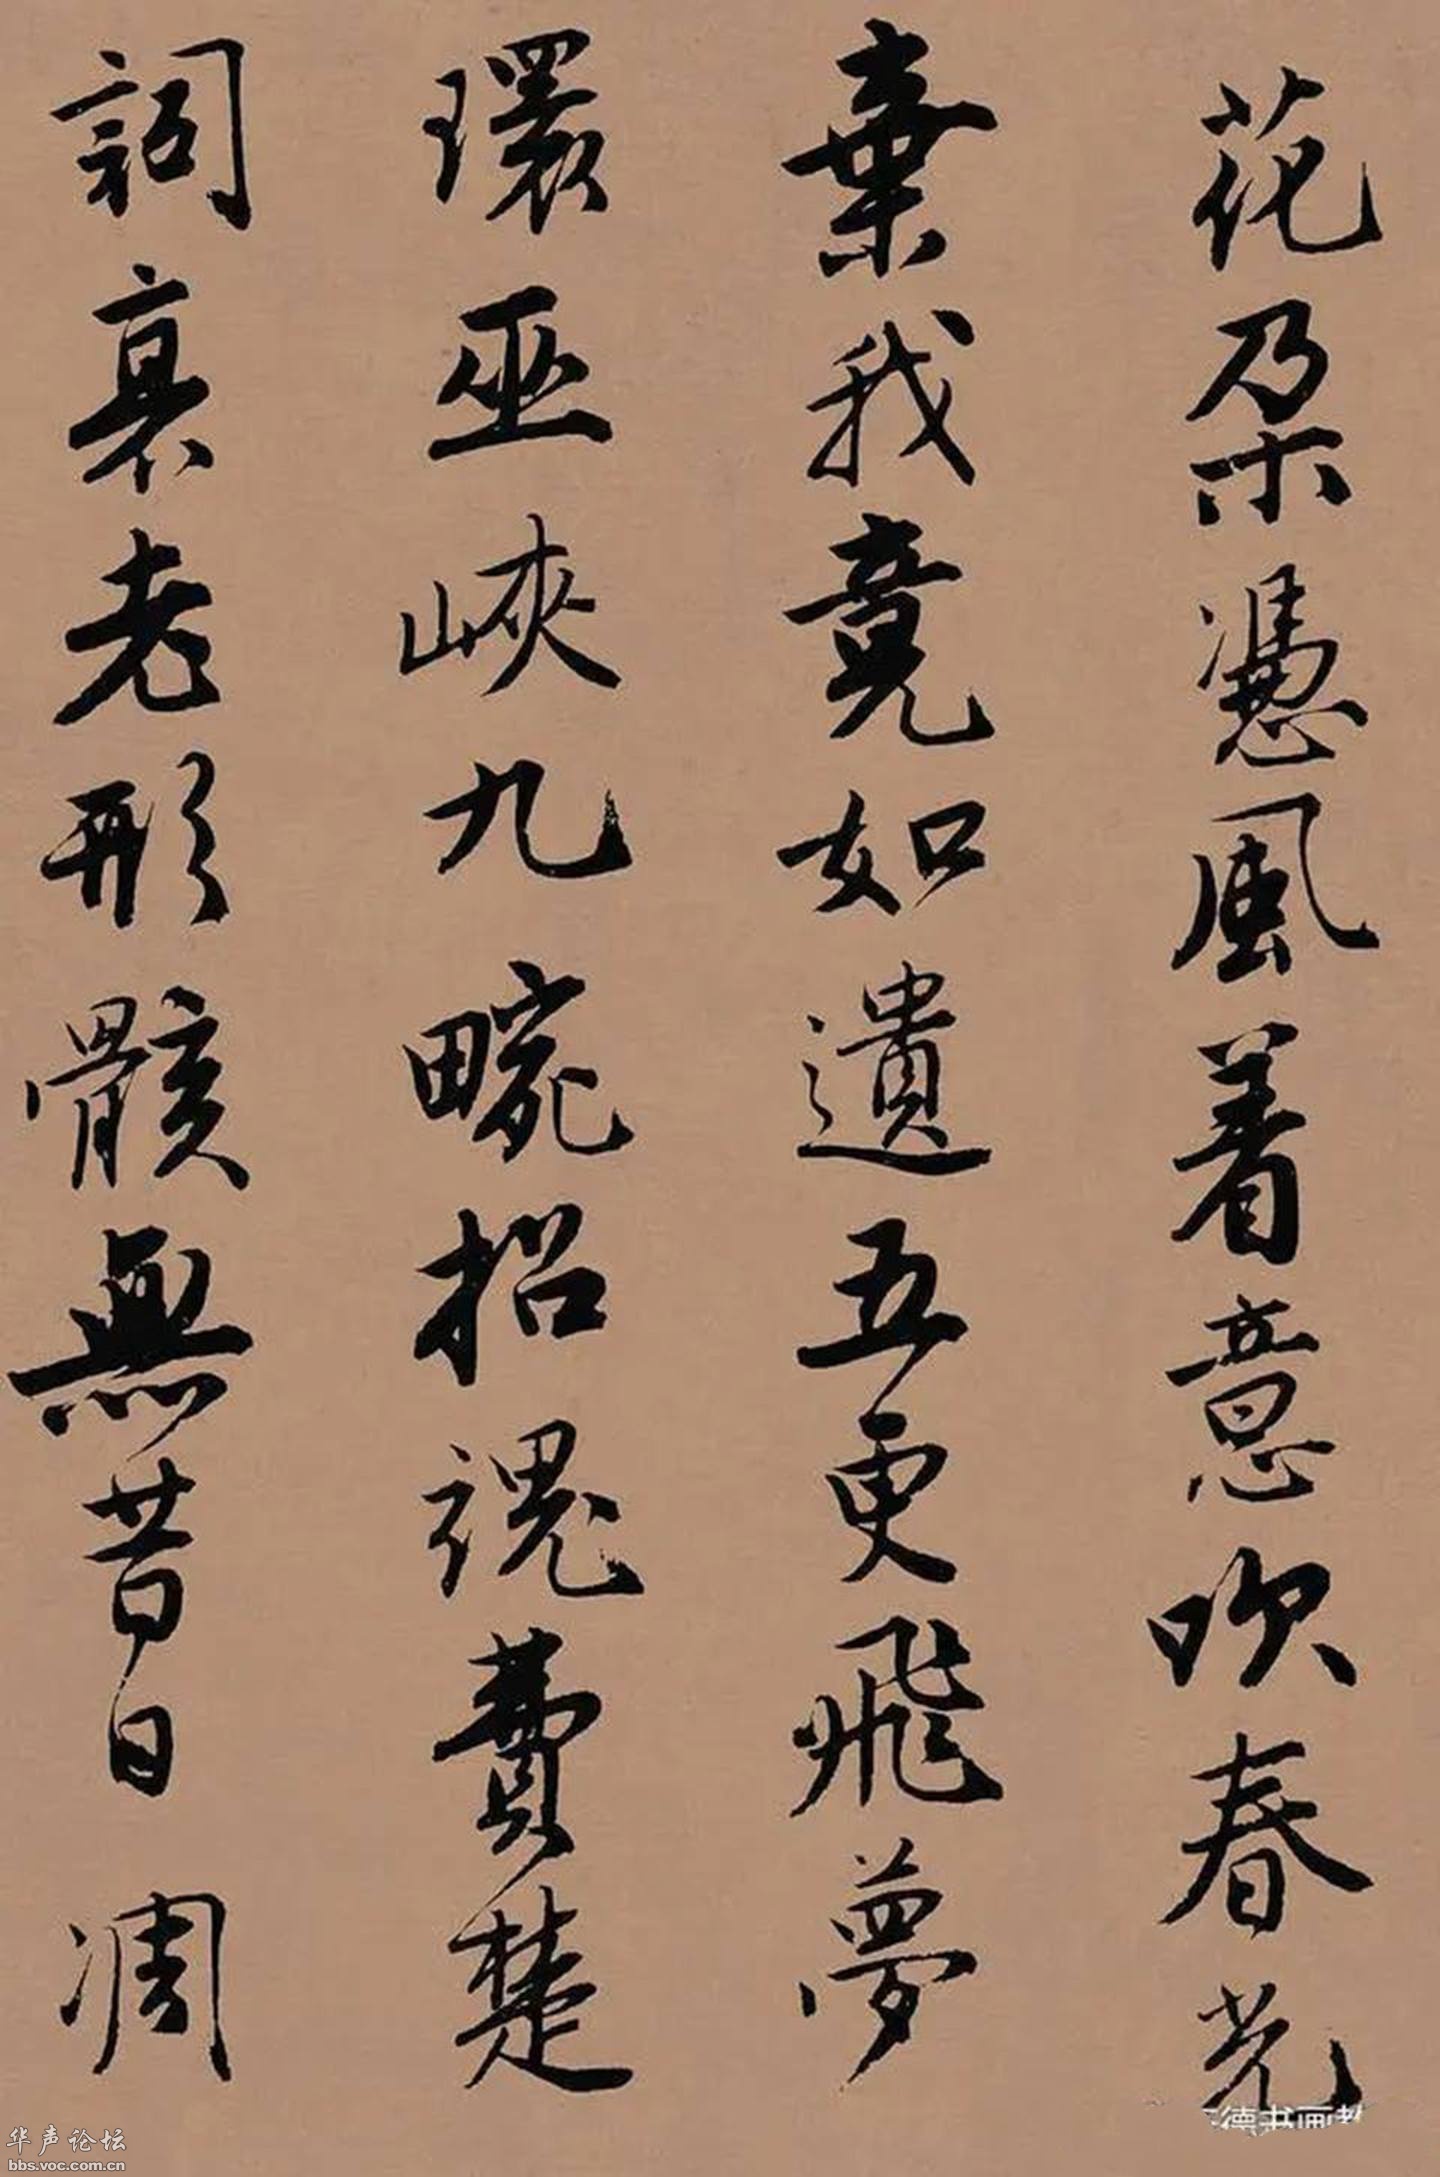 花朵憑風着意吹春光
棄我竟如遺五更飛夢
環巫峽九畹招魂費楚
詞衰老形骸無昔日凋
华声论坛
bbs.voc.com.cn
德书画